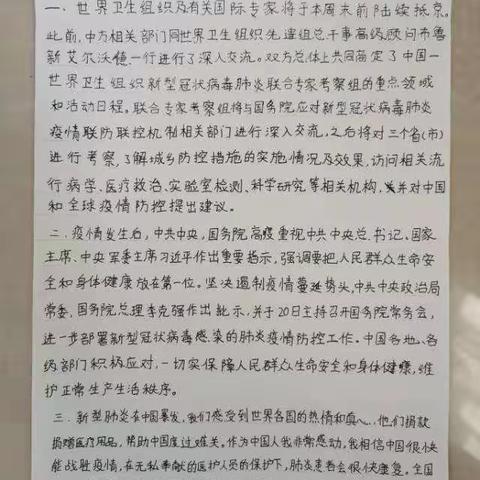 一、世界卫生组织及有关国际专家将于本周末前陆续抵京。
此前,中方相关部门同世界卫生组织先遣组总干事高级顾问布鲁
斯艾尔沃德一行进行了深入交流。双方总体上共同商定了中国—
世界卫生组织新型冠状病毒肺炎联合专家考察组的重点领域
和活动日程。联合专家考察组将与国务院应对新型冠状病毒肺炎
疫情联防联控机制相关部门进行深入交流,之后将对三个省(市)
进行考察,了解城乡防控措施的实施情况及效果,访问相关流
行病学、医疗救治、实验室检测、科学研究等相关机构,并对中国
和全球疫情防控提出建议。
二、疫情发生后,中共中央,国务院高度重视中共中央总书记、国家
主席、中央军委主席习近平作出重要指示,强调要把人民群众生命安
全和身体健康放在第一位。坚决遏制疫情蔓延势头,中共中央政治局
常委,国务院总理李克强作出批示,并于20日主持召开国务院常务会,
进一步部署新型冠状病毒感染的肺炎疫情防控工作。中国各地、各
级部门积极应对,一切实保障人民群众生命安全和身体健康,维
护正常生产生活秩序。
三、新型肺炎在中国暴发,我们感受到世界各国的热情和真心,他们捐款
捐赠医疗用品,帮助中国度过难关。作为中国人我非常感动,我相信中国很快
能战胜疫情,在无私奉献的医护人员的保护下,肺炎患者会很快康复。全国